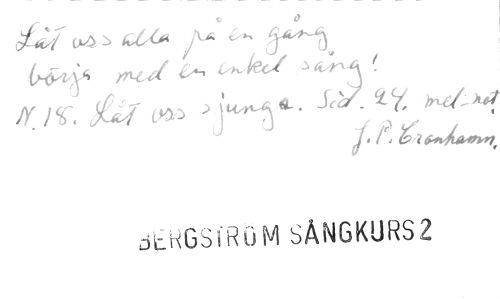 Låt oss alla på en gång
börja med en enkel sång!
N.18. Låt oss sjunga. Sid. 24. mel-not.
J.P. Cronhamn.
BERGSTRÖM SÅNGKURS 2